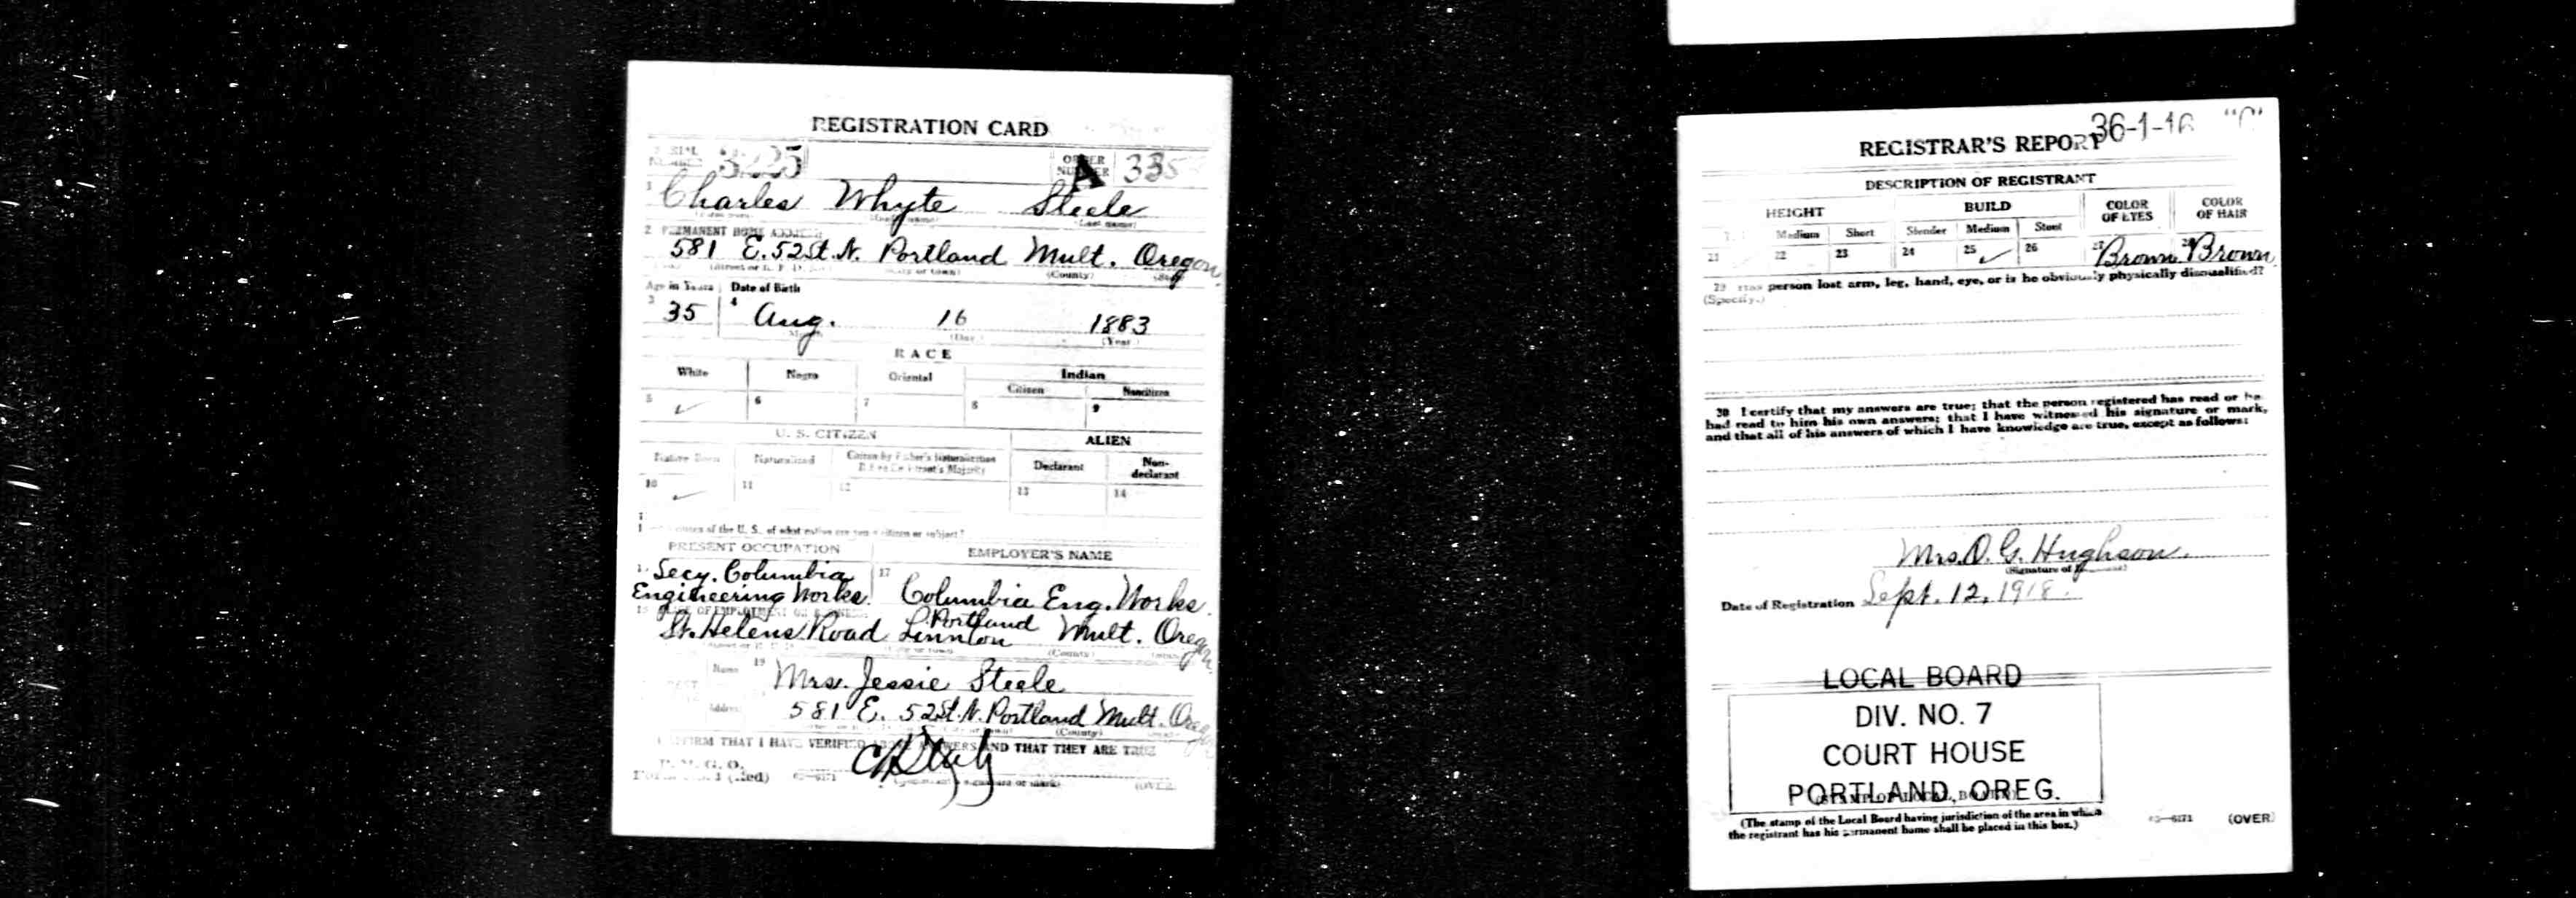 REGISTRATION CARD
NUMBER 3225 ORDER NUMBER A 335
1 Charles Whyte Steele
(Last name)
2 PERMANENT HOME ADDRESS
581 E. 52 St. N. Portland Mult. Oregon
(County)
Age in Years Date of Birth
3 35 4 Aug. 16 1883
(Day) (Year)
RACE
White Negro Oriental Indian
Citizen Noncitizen
5 ✓ 6 7 8 9
U. S. CITIZEN ALIEN
Native Born Naturalized Citizen by Father's Naturalization Before Registrant's Majority Declarant Non-declarant
10 ✓ 11 12 13 14
of the U. S., of what nation are you a citizen or subject?
PRESENT OCCUPATION EMPLOYER'S NAME
Secy. Columbia
Engineering Works. 17 Columbia Eng. Works.
PLACE OF EMPLOYMENT OR BUSINESS
St. Helens Road Linnton Portland Mult. Oregon
(County)
Name 19 Mrs. Jessie Steele
Address 581 E. 52 St. N. Portland Mult. Oregon
(County)
AFFIRM THAT I HAVE VERIFIED ABOVE ANSWERS AND THAT THEY ARE TRUE
P. M. G. O.
(Red) (OVER)
REGISTRAR'S REPORT 36-1-16 "C"
DESCRIPTION OF REGISTRANT
HEIGHT BUILD COLOR OF EYES COLOR OF HAIR
Medium Short Slender Medium Stout
21 22 23 24 25 ✓ 26 27 Brown 28 Brown
29 Has person lost arm, leg, hand, eye, or is he obviously physically disqualified?
(Specify.)
30 I certify that my answers are true; that the person registered has read or has
had read to him his own answers; that I have witnessed his signature or mark,
and that all of his answers of which I have knowledge are true, except as follows:
Mrs. O. G. Hughson.
(Signature of
Date of Registration Sept. 12, 1918.
LOCAL BOARD
DIV. NO. 7
COURT HOUSE
PORTLAND, OREG.
(STAMP OF LOCAL BOARD)
(The stamp of the Local Board having jurisdiction of the area in which
the registrant has his permanent home shall be placed in this box.)
03—6171 (OVER)